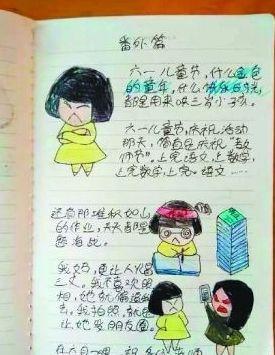 番外篇
六一儿童节,什么金色
的童年,什么快乐时光,
都是用来哄三岁小孩。
六一儿童节,庆祝活动
那天,简直是庆祝“教
师节”。上完语文上数学,
上完数学,上完语文……
还有那堆积如山
的作业,天天都是
题海战
我妈,更让人火冒
三丈。我不喜欢照
相,她就偏偏
去,我拍照,就
让她发朋友圈